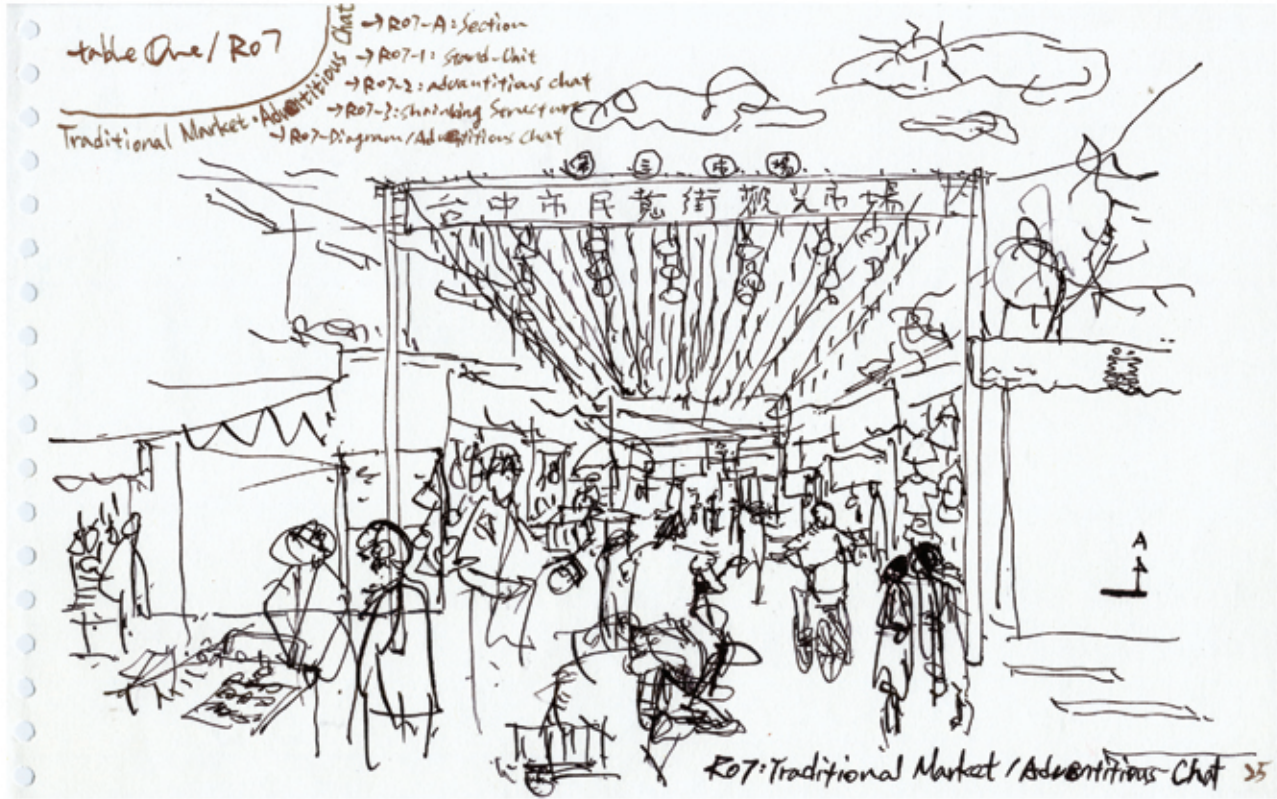 table One / R07
Traditional Market・Adventitious Chat
→R07-A: Section
→R07-1: Stand-Unit
→R07-2: advantitious chat
→R07-3: shrinking Structure
→R07-Diagram/Adventitious Chat
第 三 市 場
台中市民意街觀光市場
A
R07:Traditional Market / Adventitious Chat 25